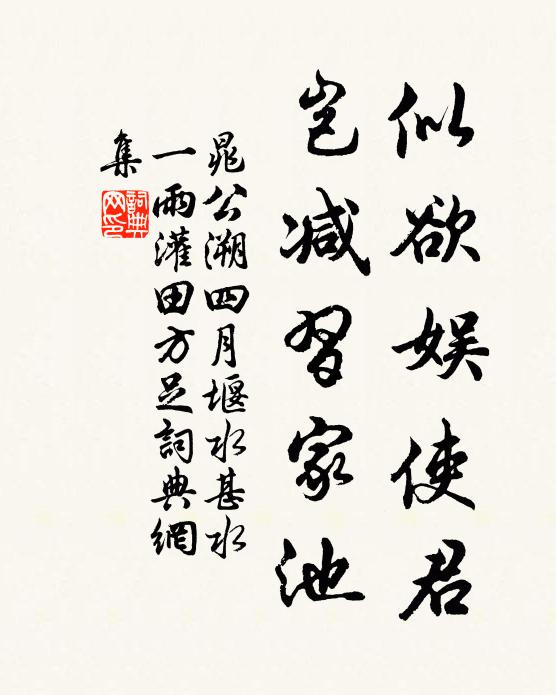 似欲娱使君
岂減習家池
晁公溯四月堰水甚水
一雨灌田方足詞典網
集
詞典網印